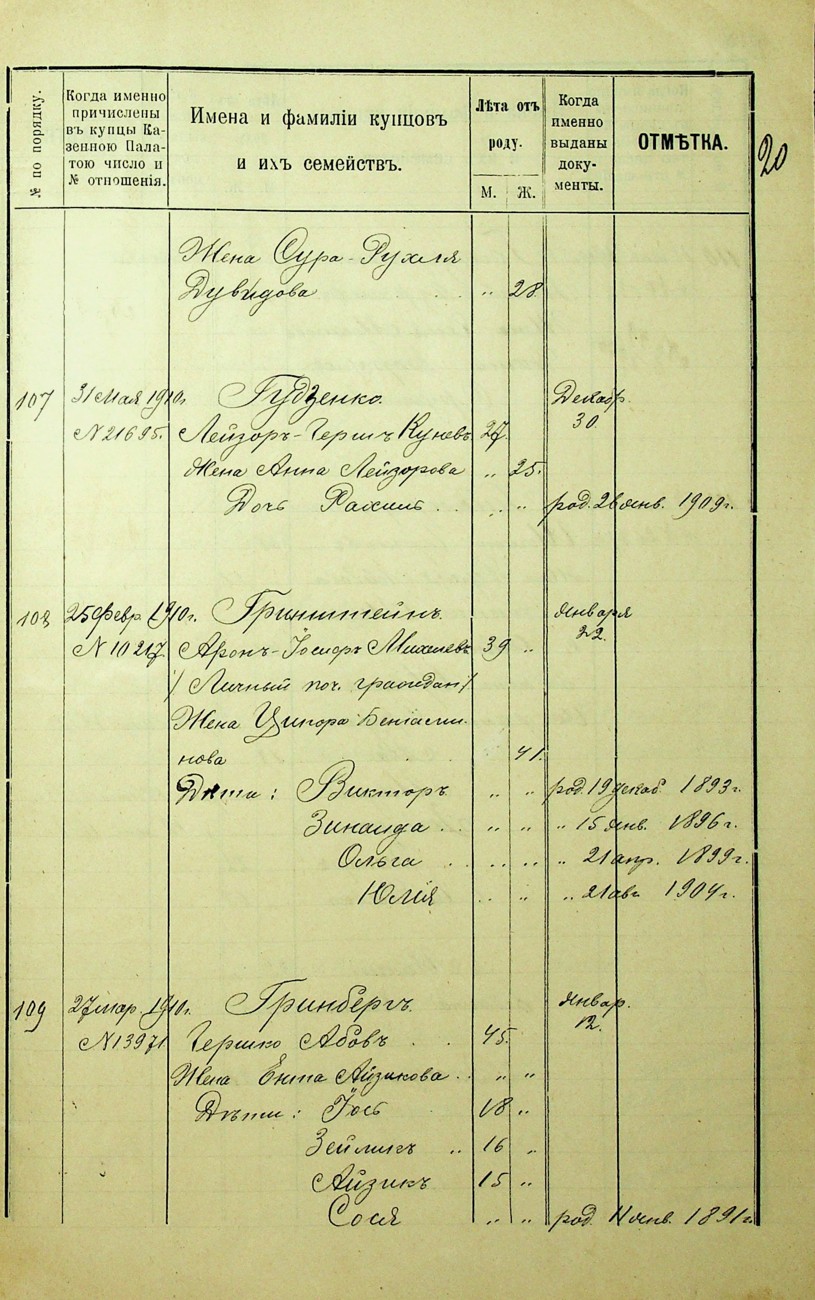 20
№ по порядку.
Когда именно
причислены
въ купцы Ка-
зенною Пала-
тою число и
№ отношенія.
Имена и фамиліи купцовъ
и ихъ семействъ.
Лѣта отъ
роду.
М. Ж.
Когда
именно
выданы
доку-
менты.
ОТМѢТКА.
Жена Сура-Рухля
Дувидова „ 28
107 31 Мая 1910 г. Гудзенко. Декабр.
N 21695. Лейзоръ-Гершъ Куневъ 27. 30
Жена Анна Лейзорова „ 25.
Дочь Рахиль . . „ „ род. 28 янв. 1909 г.
108 25 Февр. 1910 г. Гринштейнъ. Января
N 10217 Аронъ-Іосифъ Михелевъ 39 „ 22.
/Личный поч. граждан/
Жена Ципора Беніами-
нова 41.
Дѣти: Викторъ „ „ род. 19 декаб. 1893 г.
Зинаида . „ „ „ 15 янв. 1896 г.
Ольга . . „ „ „ 21 апр. 1899 г.
Юлія „ „ „ 21 авг. 1904 г.
109 27 мар. 1910 г. Гринбергъ. Январ.
N 13971 Гершко Абовъ . . 45. 12.
Жена Ента Айзикова . . „ „
Дѣти: Іось 18 „
Зейликъ „ 16 „
Айзикъ 15 „
Сося „ „ род. 11 янв. 1891 г.